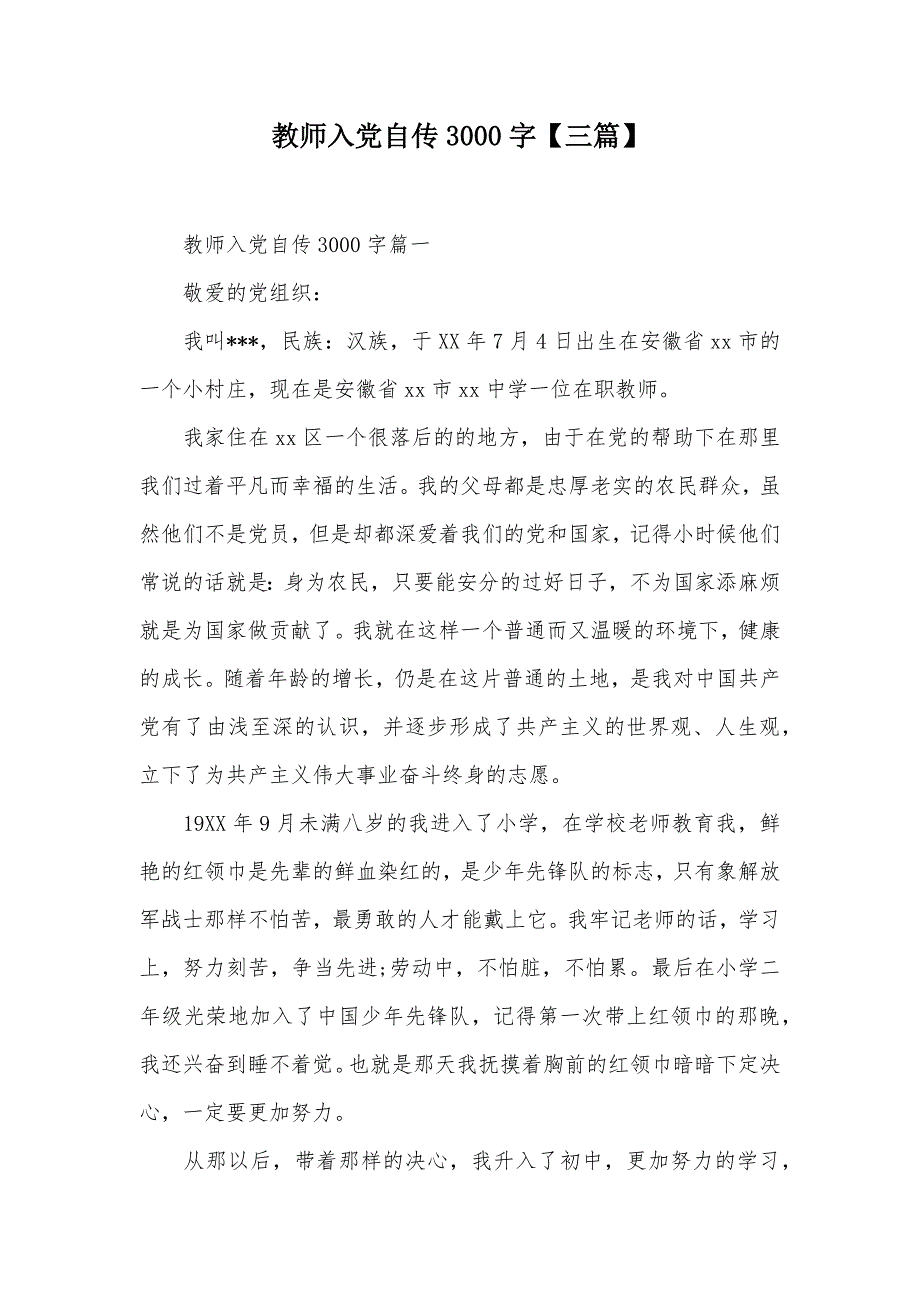 教师入党自传 3000 字【三篇】
教师入党自传 3000 字篇一
敬爱的党组织：
我叫***，民族：汉族，于 XX 年 7 月 4 日出生在安徽省 xx 市的
一个小村庄，现在是安徽省 xx 市 xx 中学一位在职教师。
我家住在 xx 区一个很落后的的地方，由于在党的帮助下在那里
我们过着平凡而幸福的生活。我的父母都是忠厚老实的农民群众，虽
然他们不是党员，但是却都深爱着我们的党和国家，记得小时候他们
常说的话就是：身为农民，只要能安分的过好日子，不为国家添麻烦
就是为国家做贡献了。我就在这样一个普通而又温暖的环境下，健康
的成长。随着年龄的增长，仍是在这片普通的土地，是我对中国共产
党有了由浅至深的认识，并逐步形成了共产主义的世界观、人生观，
立下了为共产主义伟大事业奋斗终身的志愿。
19XX 年 9 月未满八岁的我进入了小学，在学校老师教育我，鲜
艳的红领巾是先辈的鲜血染红的，是少年先锋队的标志，只有象解放
军战士那样不怕苦，最勇敢的人才能戴上它。我牢记老师的话，学习
上，努力刻苦，争当先进;劳动中，不怕脏，不怕累。最后在小学二
年级光荣地加入了中国少年先锋队，记得第一次带上红领巾的那晚，
我还兴奋到睡不着觉。也就是那天我抚摸着胸前的红领巾暗暗下定决
心，一定要更加努力。
从那以后，带着那样的决心，我升入了初中，更加努力的学习，